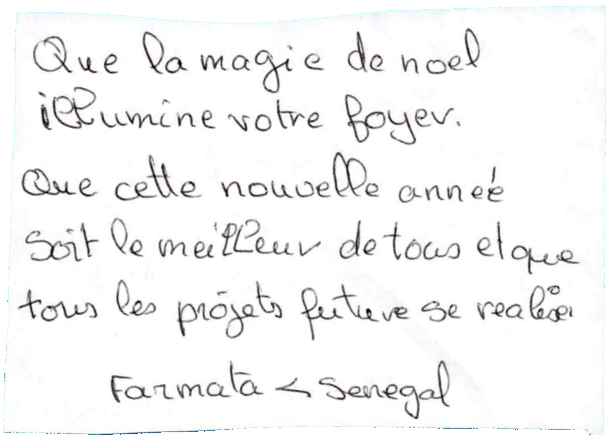 Que la magie de noel
illumine votre foyer.
Que cette nouvelle année
Soit le meilleur de tous et que
tous les projets future se
Farmata < Senegal